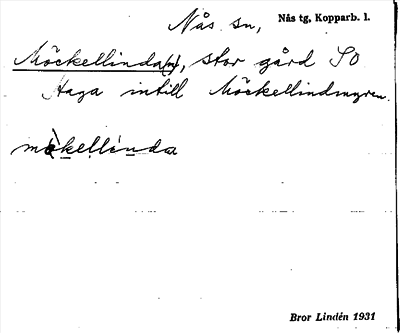 Nås sn, Nås tg, Kopparb. l.
Möckellinda(n), stor gård SO
Haga intill Möckellindmyren.
mö̀kellìnda
Bror Lindén 1931